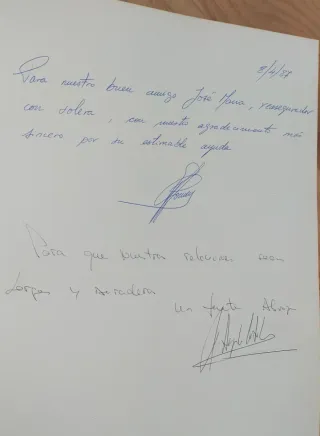 8/4/87
Para nuestro buen amigo José María, reasegurador
con solera, con nuestro agradecimiento más
sincero por su estimable ayuda
Para que nuestra relación sea
larga y duradera
un fuerte Abrazo